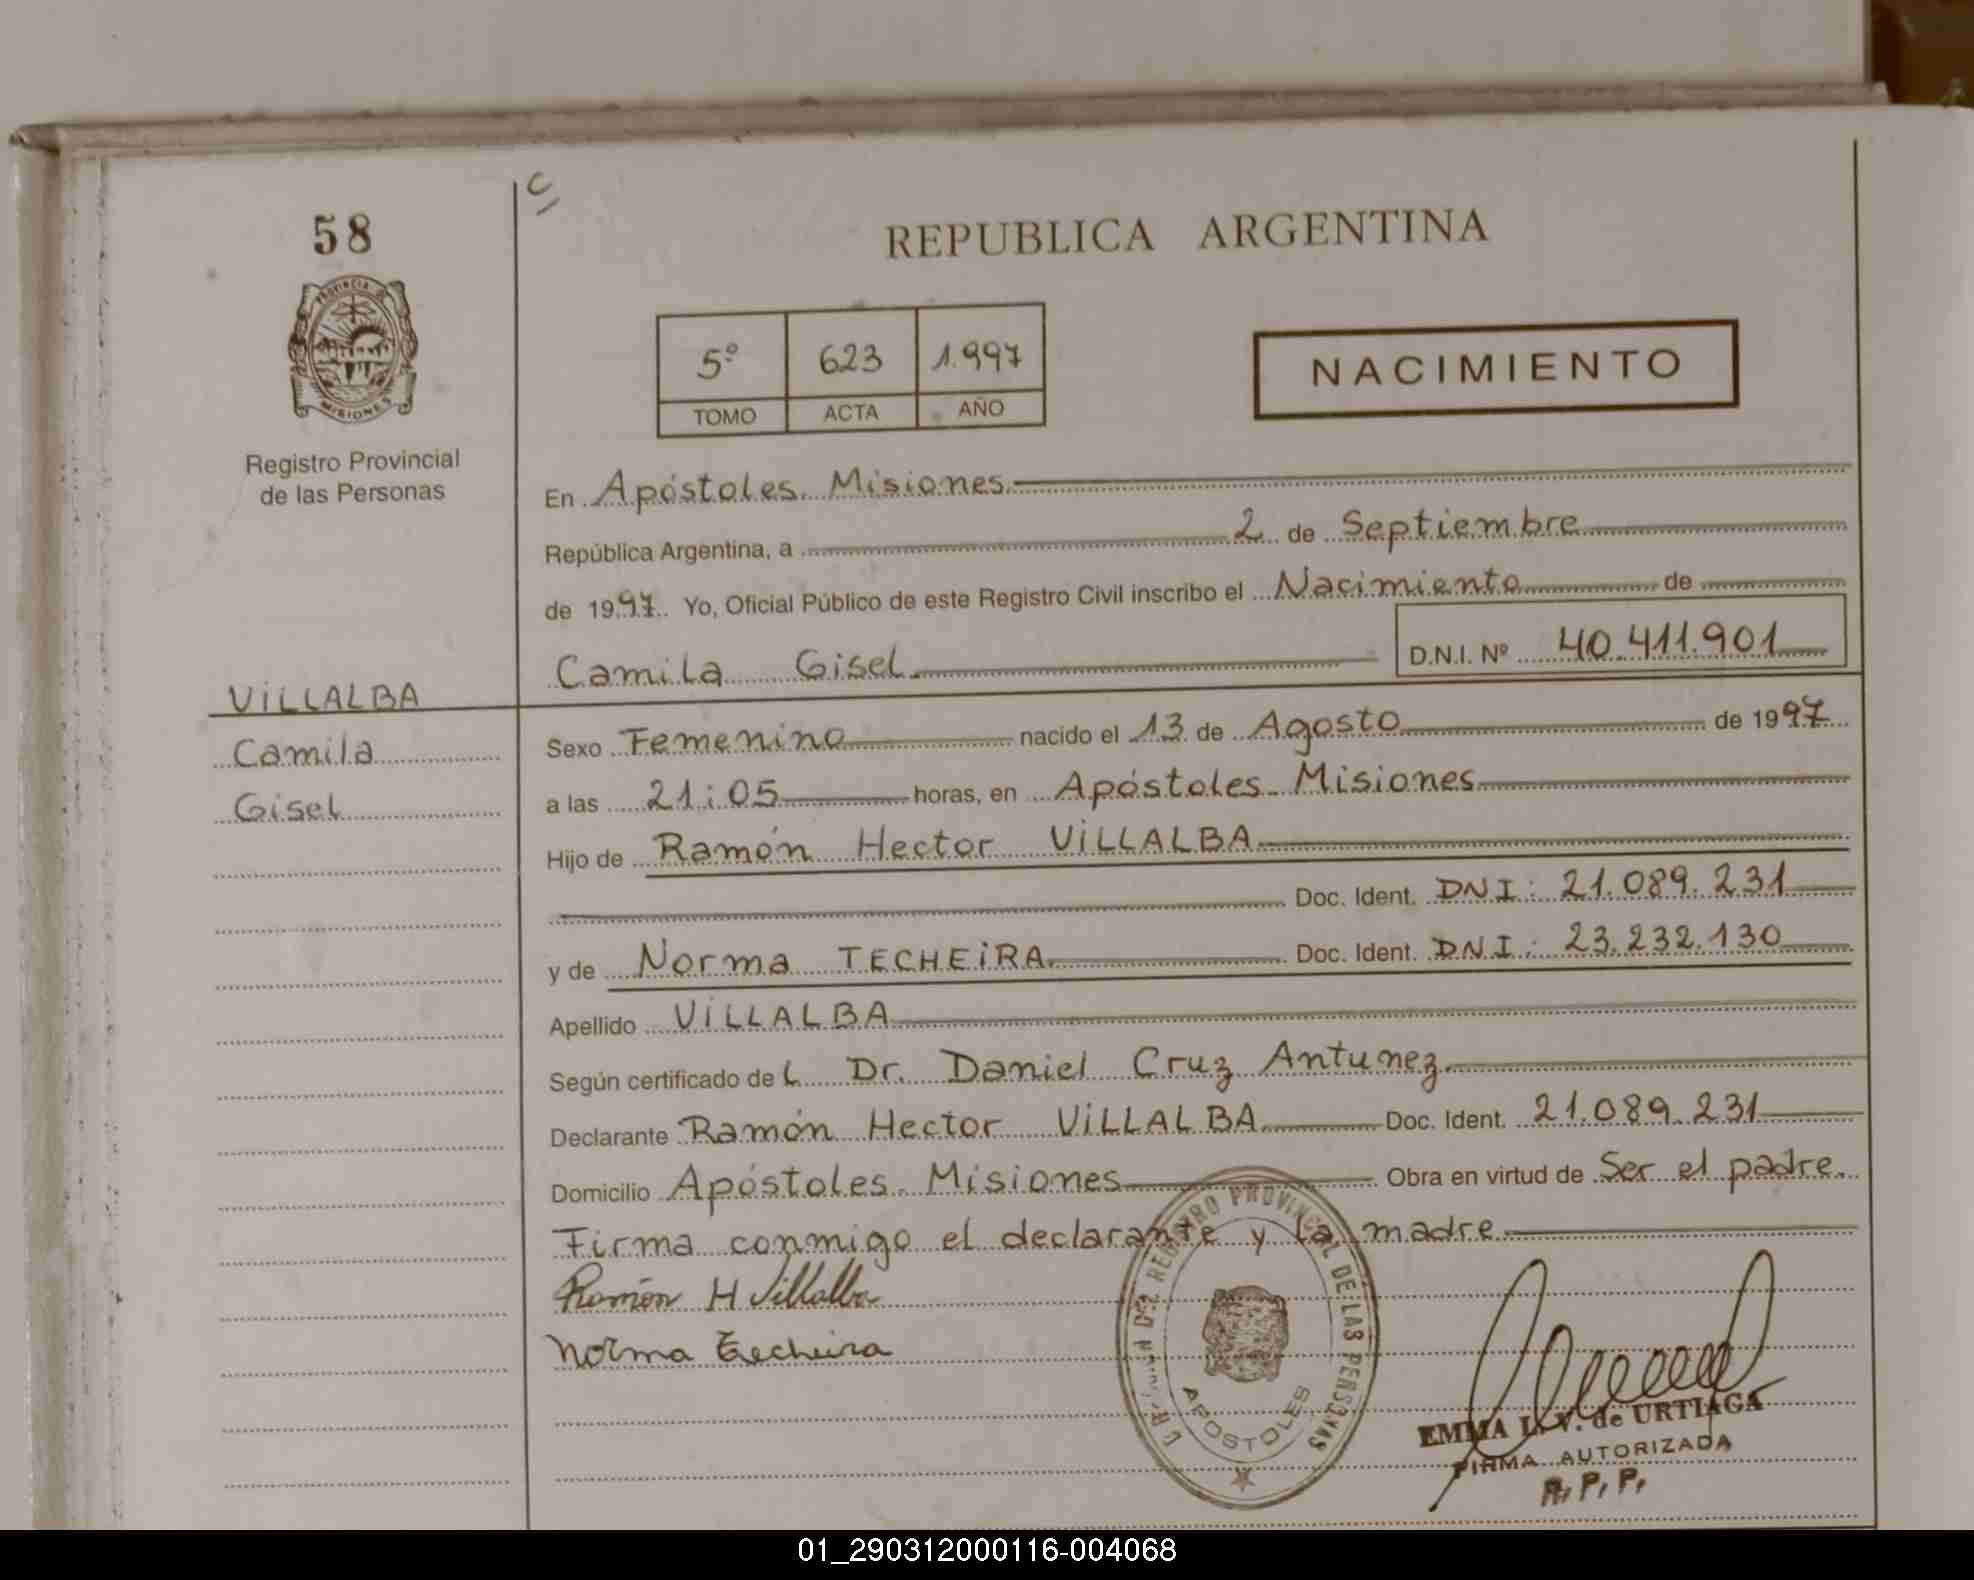 58
REPUBLICA ARGENTINA
PROVINCIA DE
MISIONES
Registro Provincial
de las Personas
5º 623 1.997
TOMO ACTA AÑO
NACIMIENTO
En Apóstoles. Misiones.
República Argentina, a 2 de Septiembre
de 1997. Yo, Oficial Público de este Registro Civil inscribo el Nacimiento de
Camila Gisel. D.N.I. Nº 40.411.901
VILLALBA
Camila
Gisel
Sexo Femenino nacido el 13 de Agosto de 1997
a las 21:05 horas, en Apóstoles. Misiones
Hijo de Ramón Hector VILLALBA.
Doc. Ident. DNI: 21.089.231
y de Norma TECHEIRA. Doc. Ident. DNI: 23.232.130
Apellido VILLALBA
Según certificado del Dr. Daniel Cruz Antunez.
Declarante Ramón Hector VILLALBA. Doc. Ident. 21.089.231
Domicilio Apóstoles. Misiones Obra en virtud de Ser el padre.
Firma conmigo el declarante y la madre.
Ramón H Villalba
Norma Techeira
REGISTRO PROVINCIAL DE LAS PERSONAS
APOSTOLES
EMMA L. V. de URTIAGA
FIRMA AUTORIZADA
R.P.P.
01_290312000116-004068